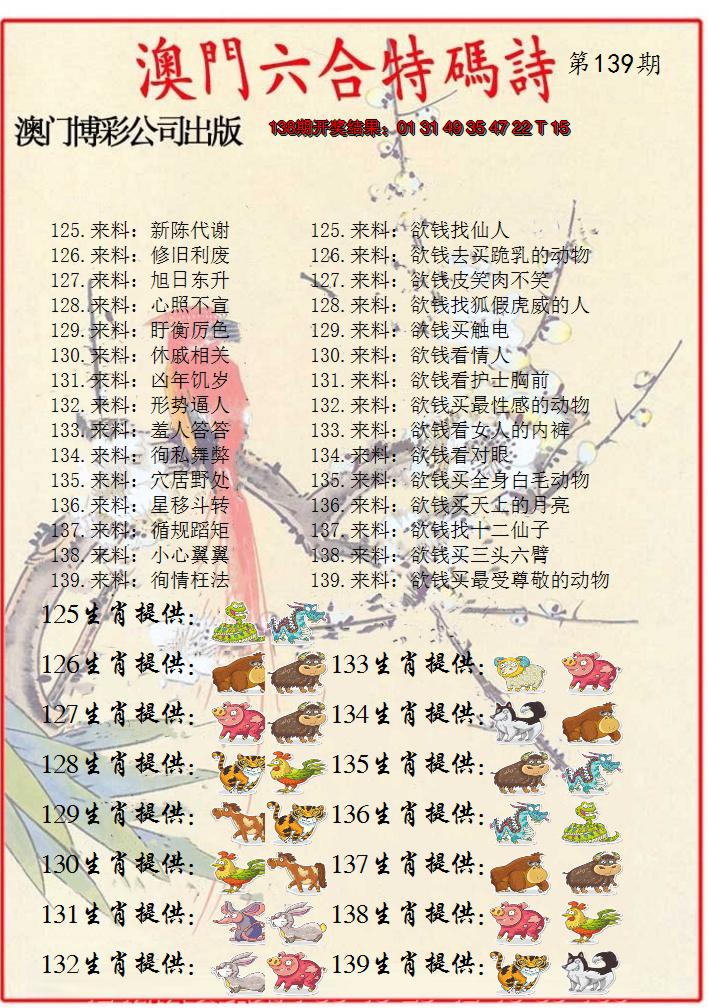 澳門六合特碼詩 第139期
澳门博彩公司出版 138期开奖结果：01 31 49 35 47 22 T 15
125.来料：新陈代谢 125.来料：欲钱找仙人
126.来料：修旧利废 126.来料：欲钱去买跪乳的动物
127.来料：旭日东升 127.来料：欲钱皮笑肉不笑
128.来料：心照不宣 128.来料：欲钱找狐假虎威的人
129.来料：盱衡厉色 129.来料：欲钱买触电
130.来料：休戚相关 130.来料：欲钱看情人
131.来料：凶年饥岁 131.来料：欲钱看护士胸前
132.来料：形势逼人 132.来料：欲钱买最性感的动物
133.来料：羞人答答 133.来料：欲钱看女人的内裤
134.来料：徇私舞弊 134.来料：欲钱看对眼
135.来料：穴居野处 135.来料：欲钱买全身白毛动物
136.来料：星移斗转 136.来料：欲钱买天上的月亮
137.来料：循规蹈矩 137.来料：欲钱找十二仙子
138.来料：小心翼翼 138.来料：欲钱买三头六臂
139.来料：徇情枉法 139.来料：欲钱买最受尊敬的动物
125生肖提供：
126生肖提供： 133生肖提供：
127生肖提供： 134生肖提供：
128生肖提供： 135生肖提供：
129生肖提供： 136生肖提供：
130生肖提供： 137生肖提供：
131生肖提供： 138生肖提供：
132生肖提供： 139生肖提供：